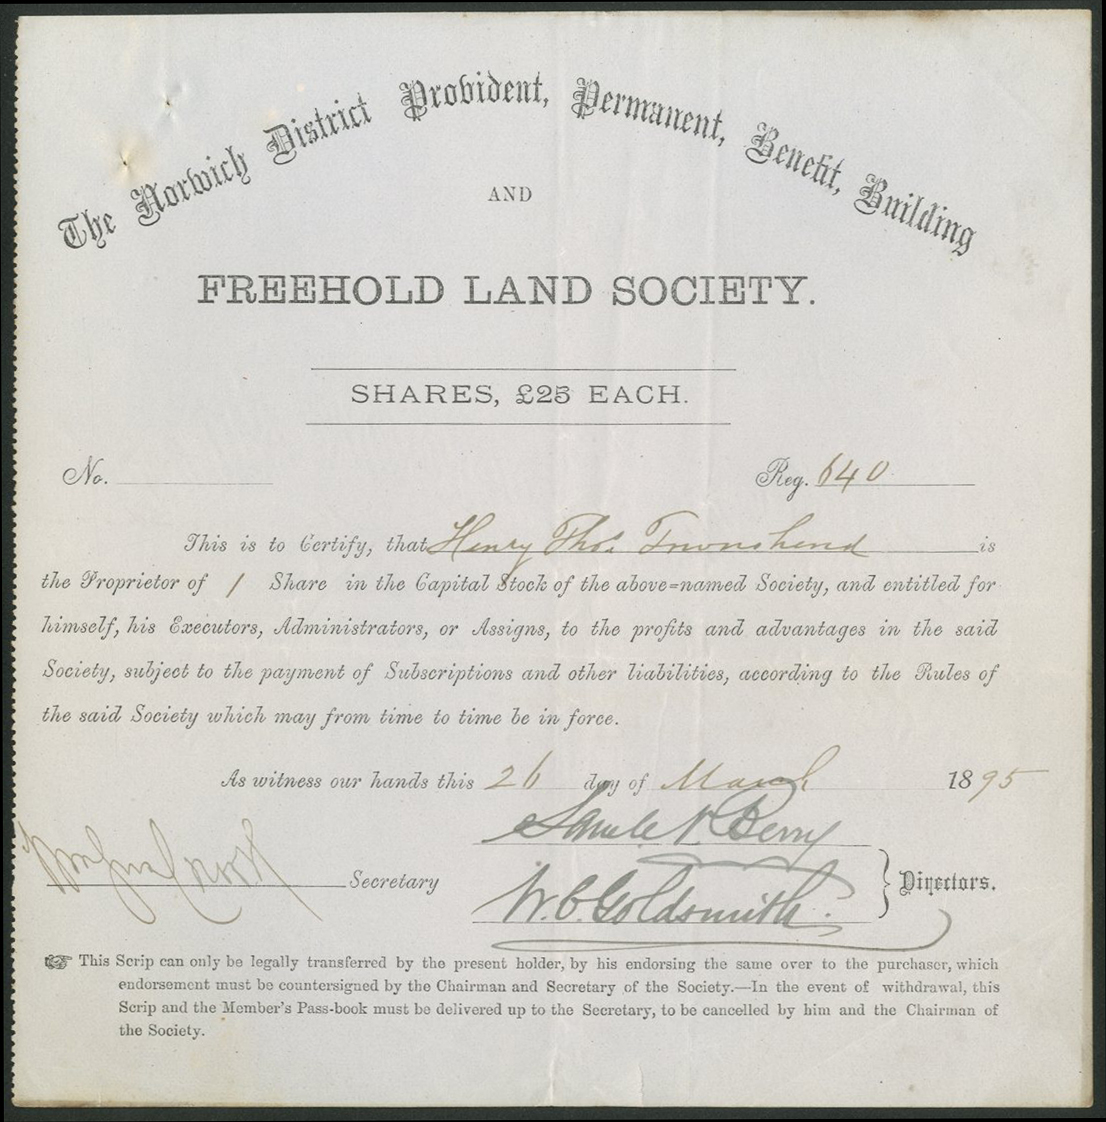 The Norwich District Provident, Permanent, Benefit, Building
AND
FREEHOLD LAND SOCIETY.
SHARES, £25 EACH.
No. Reg. 640
This is to Certify, that Henry Thos. Townshend is
the Proprietor of 1 Share in the Capital Stock of the above=named Society, and entitled for
himself, his Executors, Administrators, or Assigns, to the profits and advantages in the said
Society, subject to the payment of Subscriptions and other liabilities, according to the Rules of
the said Society which may from time to time be in force.
As witness our hands this 26 day of March 1895
Berry
Secretary
W. C. Goldsmith. Directors.
☞ This Scrip can only be legally transferred by the present holder, by his endorsing the same over to the purchaser, which
endorsement must be countersigned by the Chairman and Secretary of the Society.—In the event of withdrawal, this
Scrip and the Member's Pass-book must be delivered up to the Secretary, to be cancelled by him and the Chairman of
the Society.